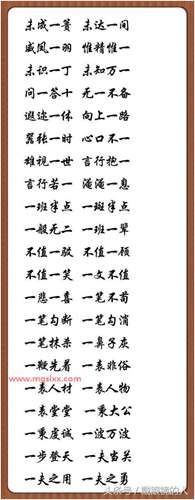 未成一篑 未达一间
威风一羽 惟精惟一
未识一丁 未知万一
问一答十 无一不备
遐迩一体 向上一路
嚣张一时 心口不一
雄视一世 言行抱一
言行若一 淹淹一息
一班半点 一斑半点
一般无二 一班一辈
不值一驳 不值一顾
不值一笑 一文不值
一悲一喜 一笔不苟
一笔勾断 一笔勾消
一笔抹杀 一鼻子灰
一鞭先着 一表非俗
www.mgsixx.com
一表人材 一表人物
一表堂堂 一秉大公
一秉虔诚 一波万波
一步登天 一夫当关
一夫之用 一夫之勇